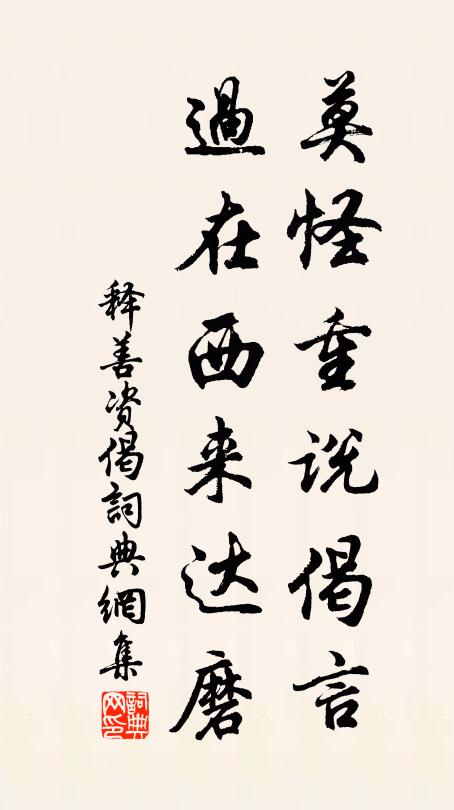 莫怪重说偈言
過在西来达磨
释善资偈詞典網集
詞典网印